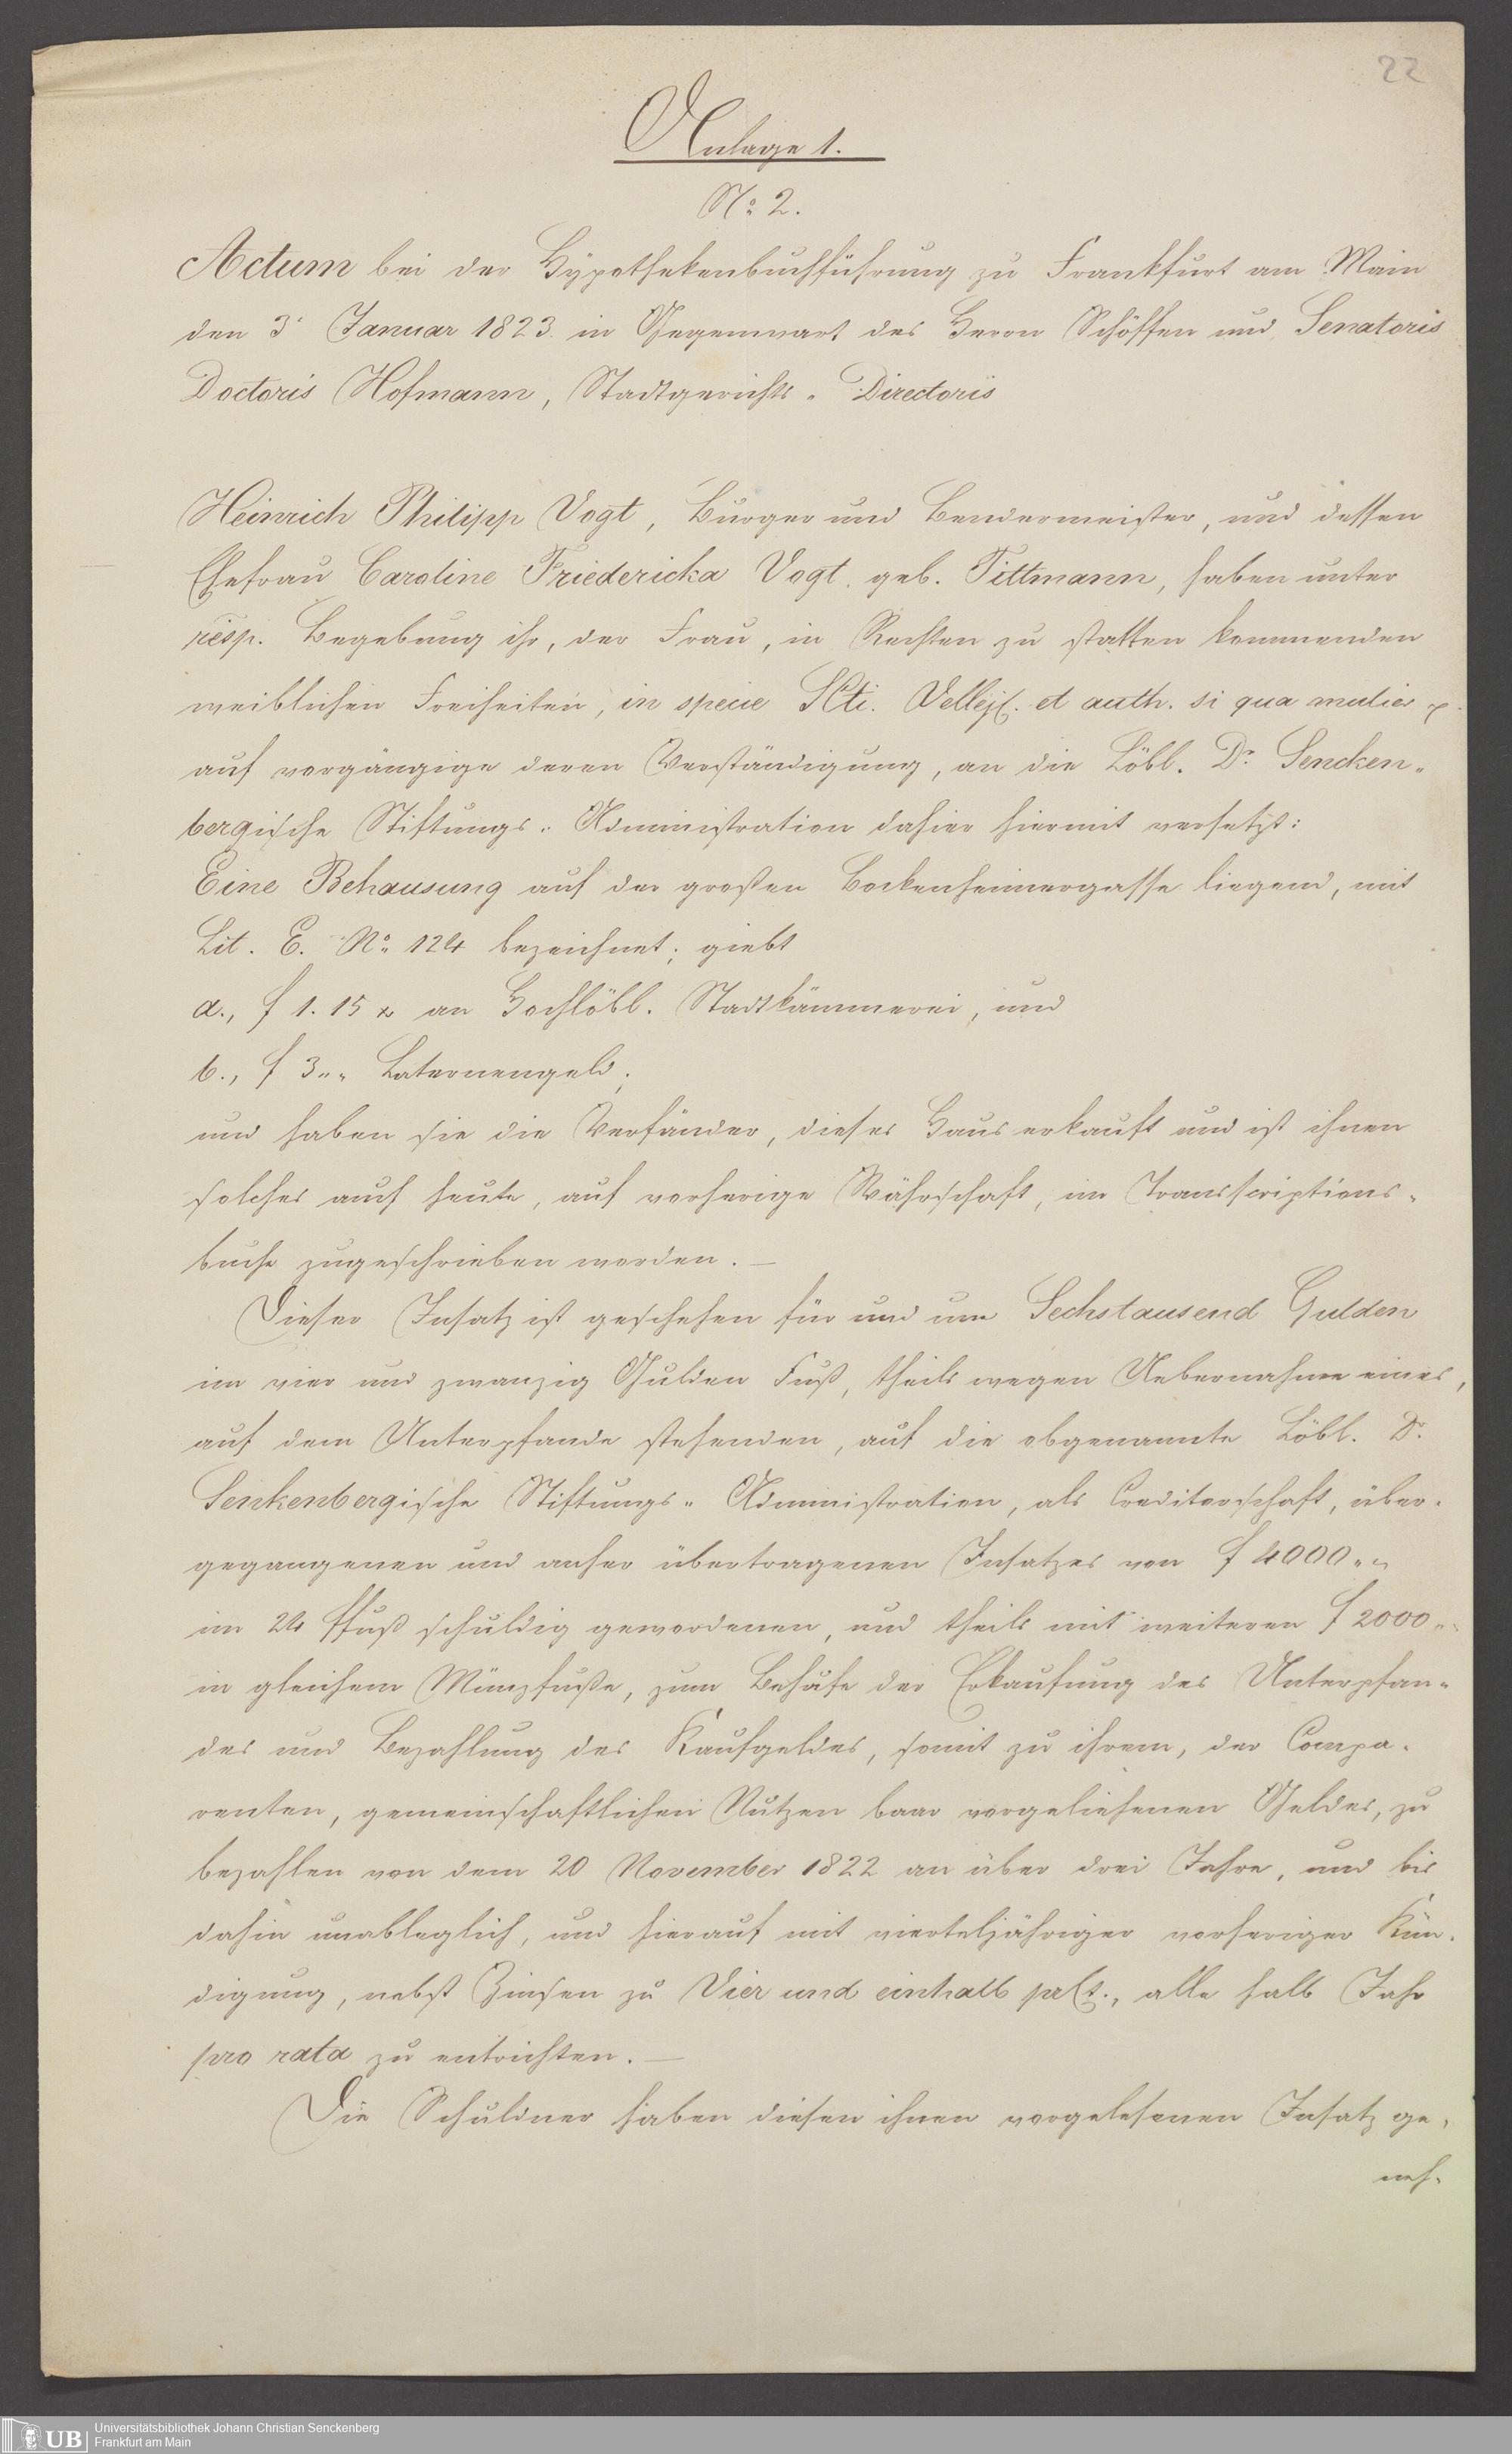 22
Anlage 1.
No. 2.
Actum bei der Hypothekenbuchführung zu Frankfurt am Main
den 3. Januar 1823. in Gegenwart des Herrn Schöffen und Senatoris
Doctoris Hofmann, Stadtgerichts- Directoris
Heinrich Philipp Vogt, Burger und Bendermeister, und dessen
Ehefrau Caroline Friedericka Vogt, geb. Tittmann, haben unter
resp. Begebung ihr, der Frau, in Rechten zu statten kommenden
weiblichen Freiheiten, in specie SCti. Vellej. et auth. si qua mulier
auf vorgängige deren Verständigung, an die Löbl. Dr. Sencken-
bergische Stiftungs- Administration dahier hiermit versetzt:
Eine Behausung auf der großen Bockenheimergasse liegend, mit
Lit. E. No. 124 bezeichnet; giebt
a., f 1. 15 x an Hochlöbl. Stadtkämmerei, und
b., f 3 „ „ Laternengeld;
und haben sie die Verfänder, dieses Haus erkauft und ist ihnen
solches auch heute, auf vorherige Währschaft, im Transscriptions-
buche zugeschrieben worden. —
Dieser Insatz ist geschehen für und um Sechstausend Gulden
im vier und zwanzig Gulden Fuß, theils wegen Uebernahme eines,
auf dem Unterpfande stehenden, auf die obgenannte Löbl. Dr.
Senkenbergische Stiftungs- Administration, als Creditorschaft, über-
gegangenen und anher übertragenen Insatzes von f 4000 „ „
im 24 f fuß schuldig gewordenen, und theils mit weiteren f 2000 „ „
in gleichem Münzfuße, zum Behufe der Erkaufung des Unterpfan-
des und Bezahlung des Kaufgeldes, somit zu ihrem, der Compa-
renten, gemeinschaftlichen Nutzen baar vorgeliehenen Geldes, zu
bezahlen von dem 20 November 1822 an über drei Jahre, und bis
dahin unableglich, und hierauf mit vierteljähriger vorheriger Kün-
digung, nebst Zinsen zu Vier und einhalb prCt., alle halb Jahr
pro rata zu entrichten. —
Die Schuldner haben diesen ihnen vorgelesenen Insatz ge-
neh-
UB
Universitätsbibliothek Johann Christian Senckenberg
Frankfurt am Main